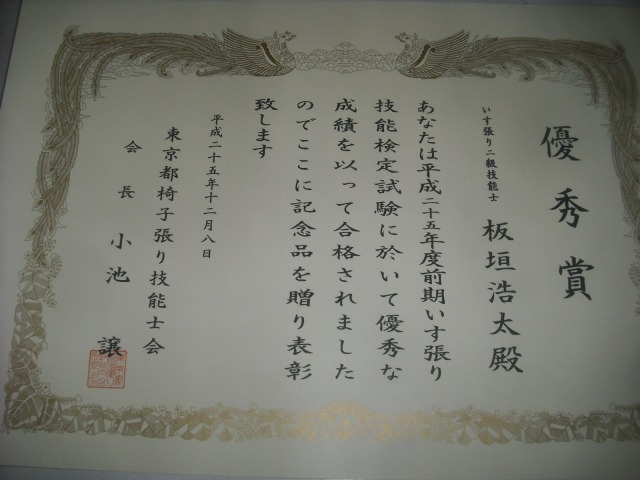 優秀賞
いす張り二級技能士
板垣浩太殿
あなたは平成二十五年度前期いす張り
技能検定試験に於いて優秀な
成績を以って合格されました
のでここに記念品を贈り表彰
致します
平成二十五年十二月八日
東京都椅子張り技能士会
会長 小池 譲